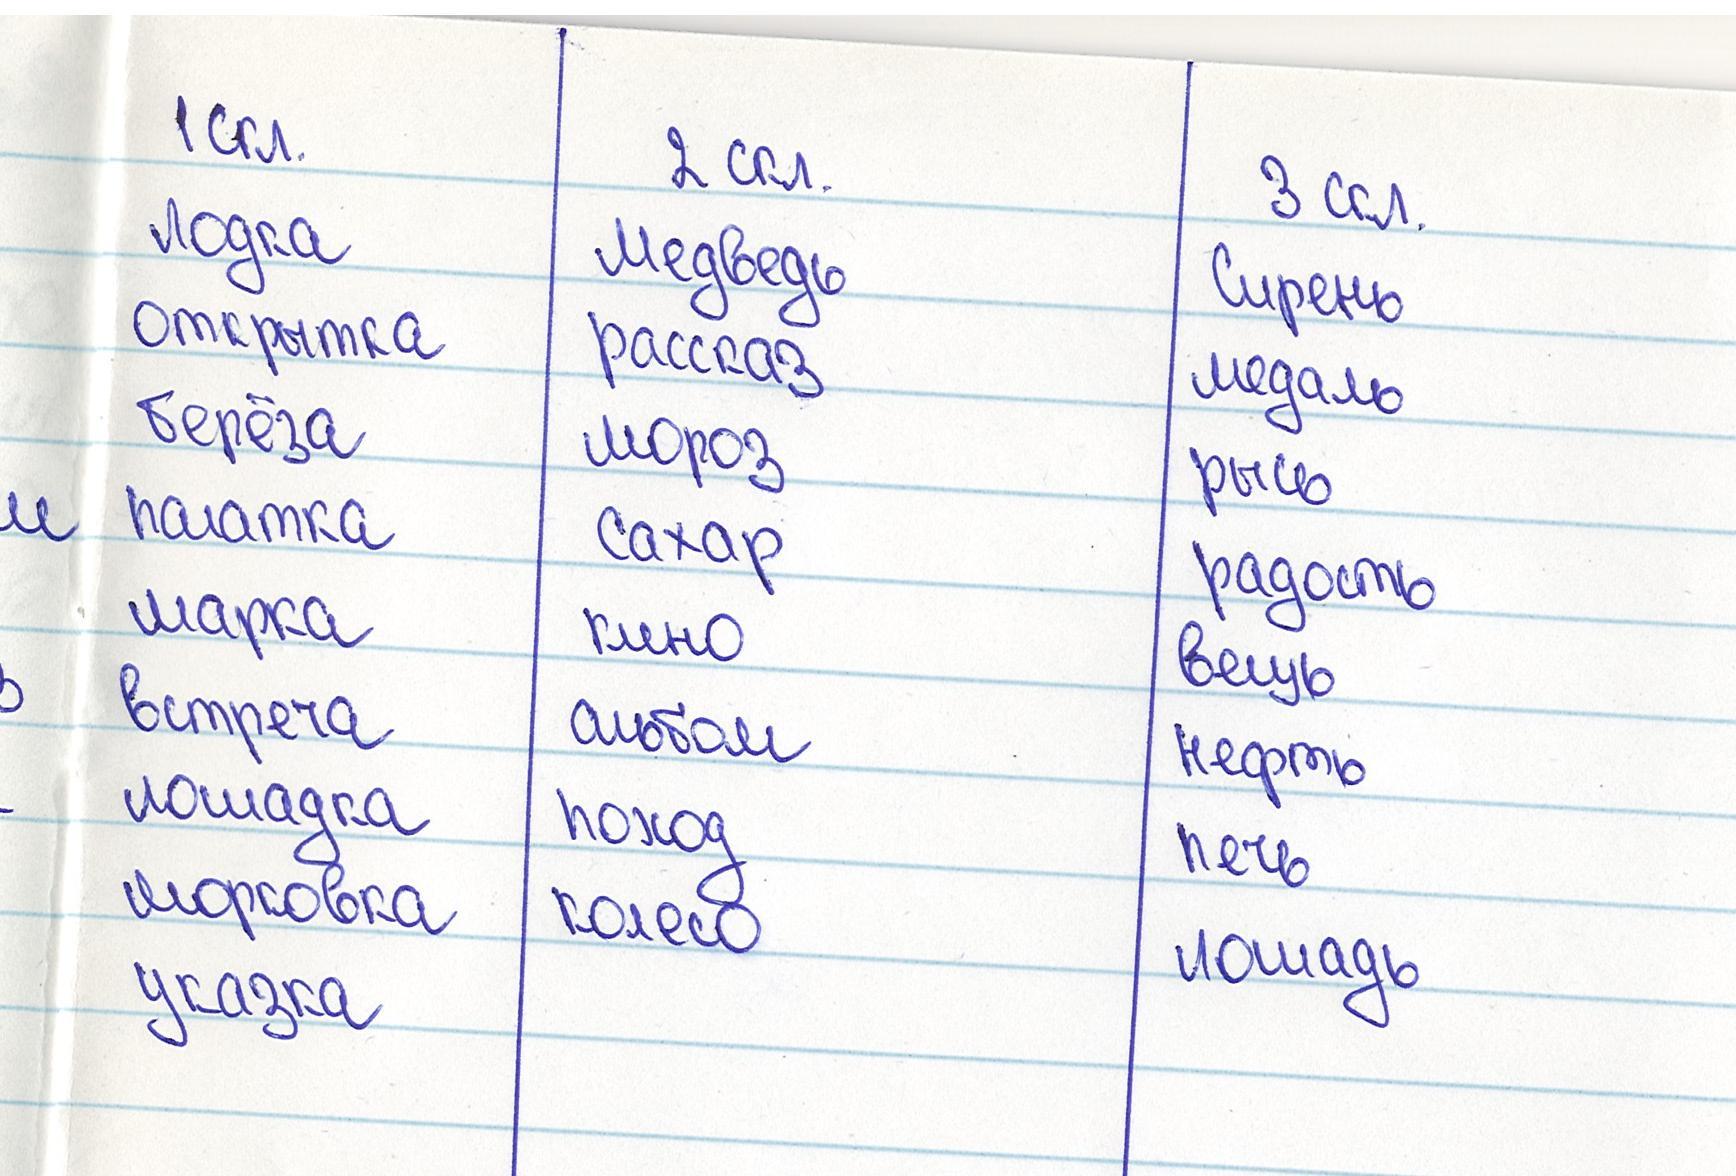 1 скл.
лодка
открытка
берёза
палатка
марка
встреча
лошадка
морковка
указка
2 скл.
Медведь
рассказ
мороз
сахар
кино
альбом
поход
колесо
3 скл.
Сирень
медаль
рысь
радость
вещь
нефть
печь
лошадь